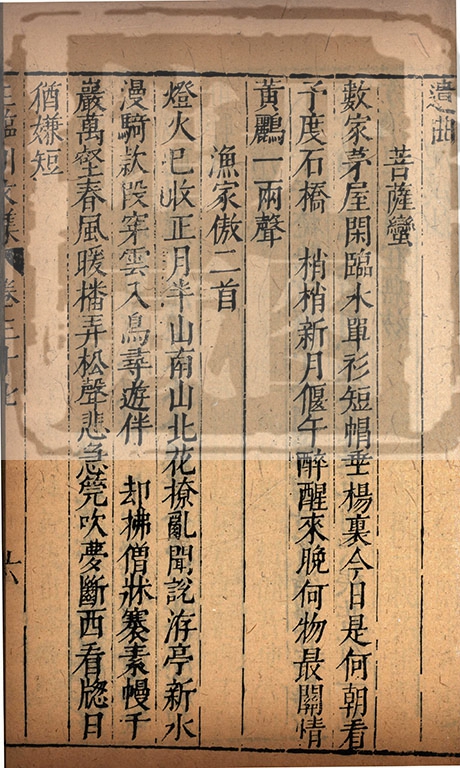 遺曲
菩薩蠻
數家茅屋閑臨水單衫短帽垂楊裏今日是何朝看
予度石橋　梢梢新月偃午醉醒來晚何物最關情
黃鸝一兩聲
漁家傲二首
燈火已收正月半山南山北花撩亂聞說洊亭新水
漫騎款段穿雲入鳥尋遊伴　却拂僧牀褰素幔千
巖萬壑春風暖橎弄松聲悲急筦吹夢斷西看牕日
猶嫌短
王臨川文集　卷三十七　六